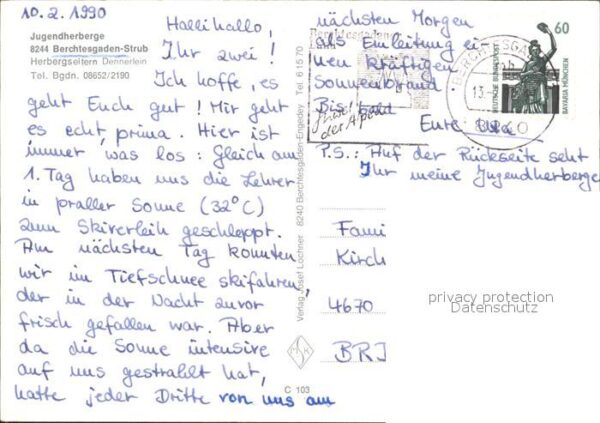 10. 2. 1990
Jugendherberge
8244 Berchtesgaden-Strub
Herbergseltern Dennerlein
Tel. Bgdn. 08652/2190
Hallihallo,
Ihr zwei!
Ich hoffe, es
geht Euch gut! Mir geht
es echt prima. Hier ist
immer was los: Gleich am
1. Tag haben uns die Lehrer
in praller Sonne (32°C)
zum Skiverleih geschleppt.
Am nächsten Tag konnten
wir im Tiefschnee skifahren,
der in der Nacht zuvor
frisch gefallen war. Aber
da die Sonne intensive
auf uns gestrahlt hat,
hatte jeder Dritte von uns am
nächsten Morgen
als Einleitung ei-
nen kräftigen
Sonnenbrand.
Bis bald
Eure
P.S.: Auf der Rückseite seht
Ihr meine Jugendherberge
Verlag Josef Lochner 8240 Berchtesgaden-Engedey Tel. 6 15 70
C 103
Berchtesgadener
Land
der Alpen
BERCHTESGADEN
60
DEUTSCHE BUNDESPOST
BAVARIA MÜNCHEN
Fami
Kirch
4670
BRD
privacy protection
Datenschutz